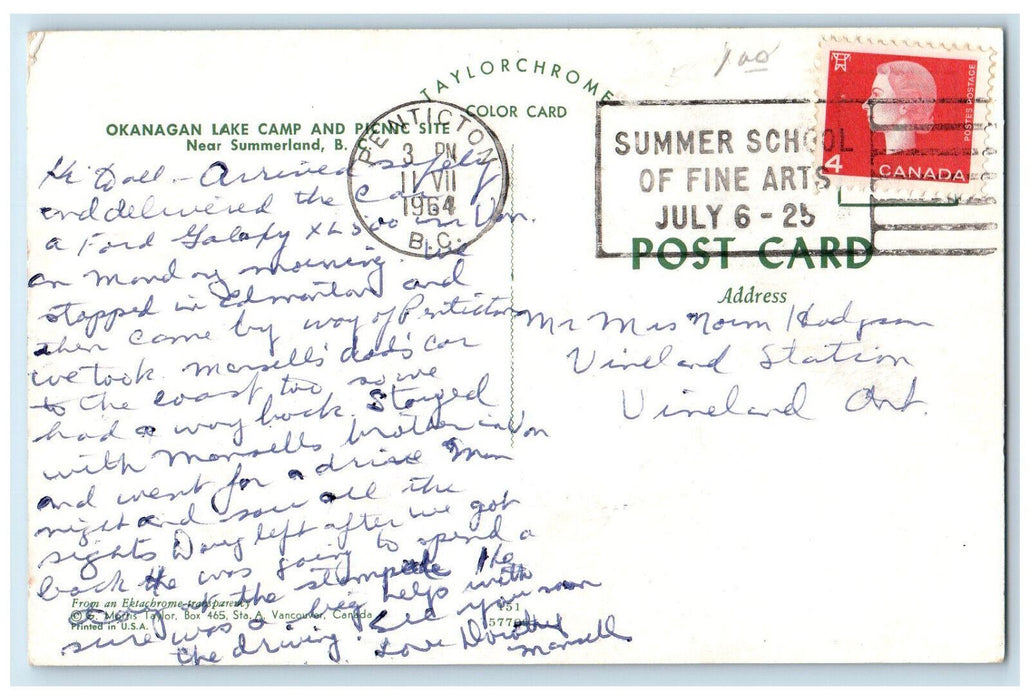 TAYLORCHROME
COLOR CARD
OKANAGAN LAKE CAMP AND PICNIC SITE
Near Summerland, B.
PENTICTON
3 PM
11 VII
1964
B.C.
SUMMER SCHOOL
OF FINE ARTS
JULY 6 - 25
1 00
4
CANADA
POSTES POSTAGE
POST CARD
Address
Mr Mrs Norm Hodgson
Vineland Station
Vineland Ont.
Hi Doll - Arrived safely
and delivered the car
a Ford Galaxy XL500 in Van.
on Monday morning. We
stopped in Edmonton and
then came by way of Penticton
we took Mansell's dad's car
to the coast too so we
had a way back. Stayed
with Mansells brother in Van
and went for a drive Mon
night and saw all the
sights Doug left after we got
back He was going to spend a
day at the stampede He
sure was a big help with
the driving. See you soon
Love Dorothy
Mansells
From an Ektachrome transparency
© G. Morris Taylor, Box 465, Sta. A, Vancouver, Canada
Printed in U.S.A.